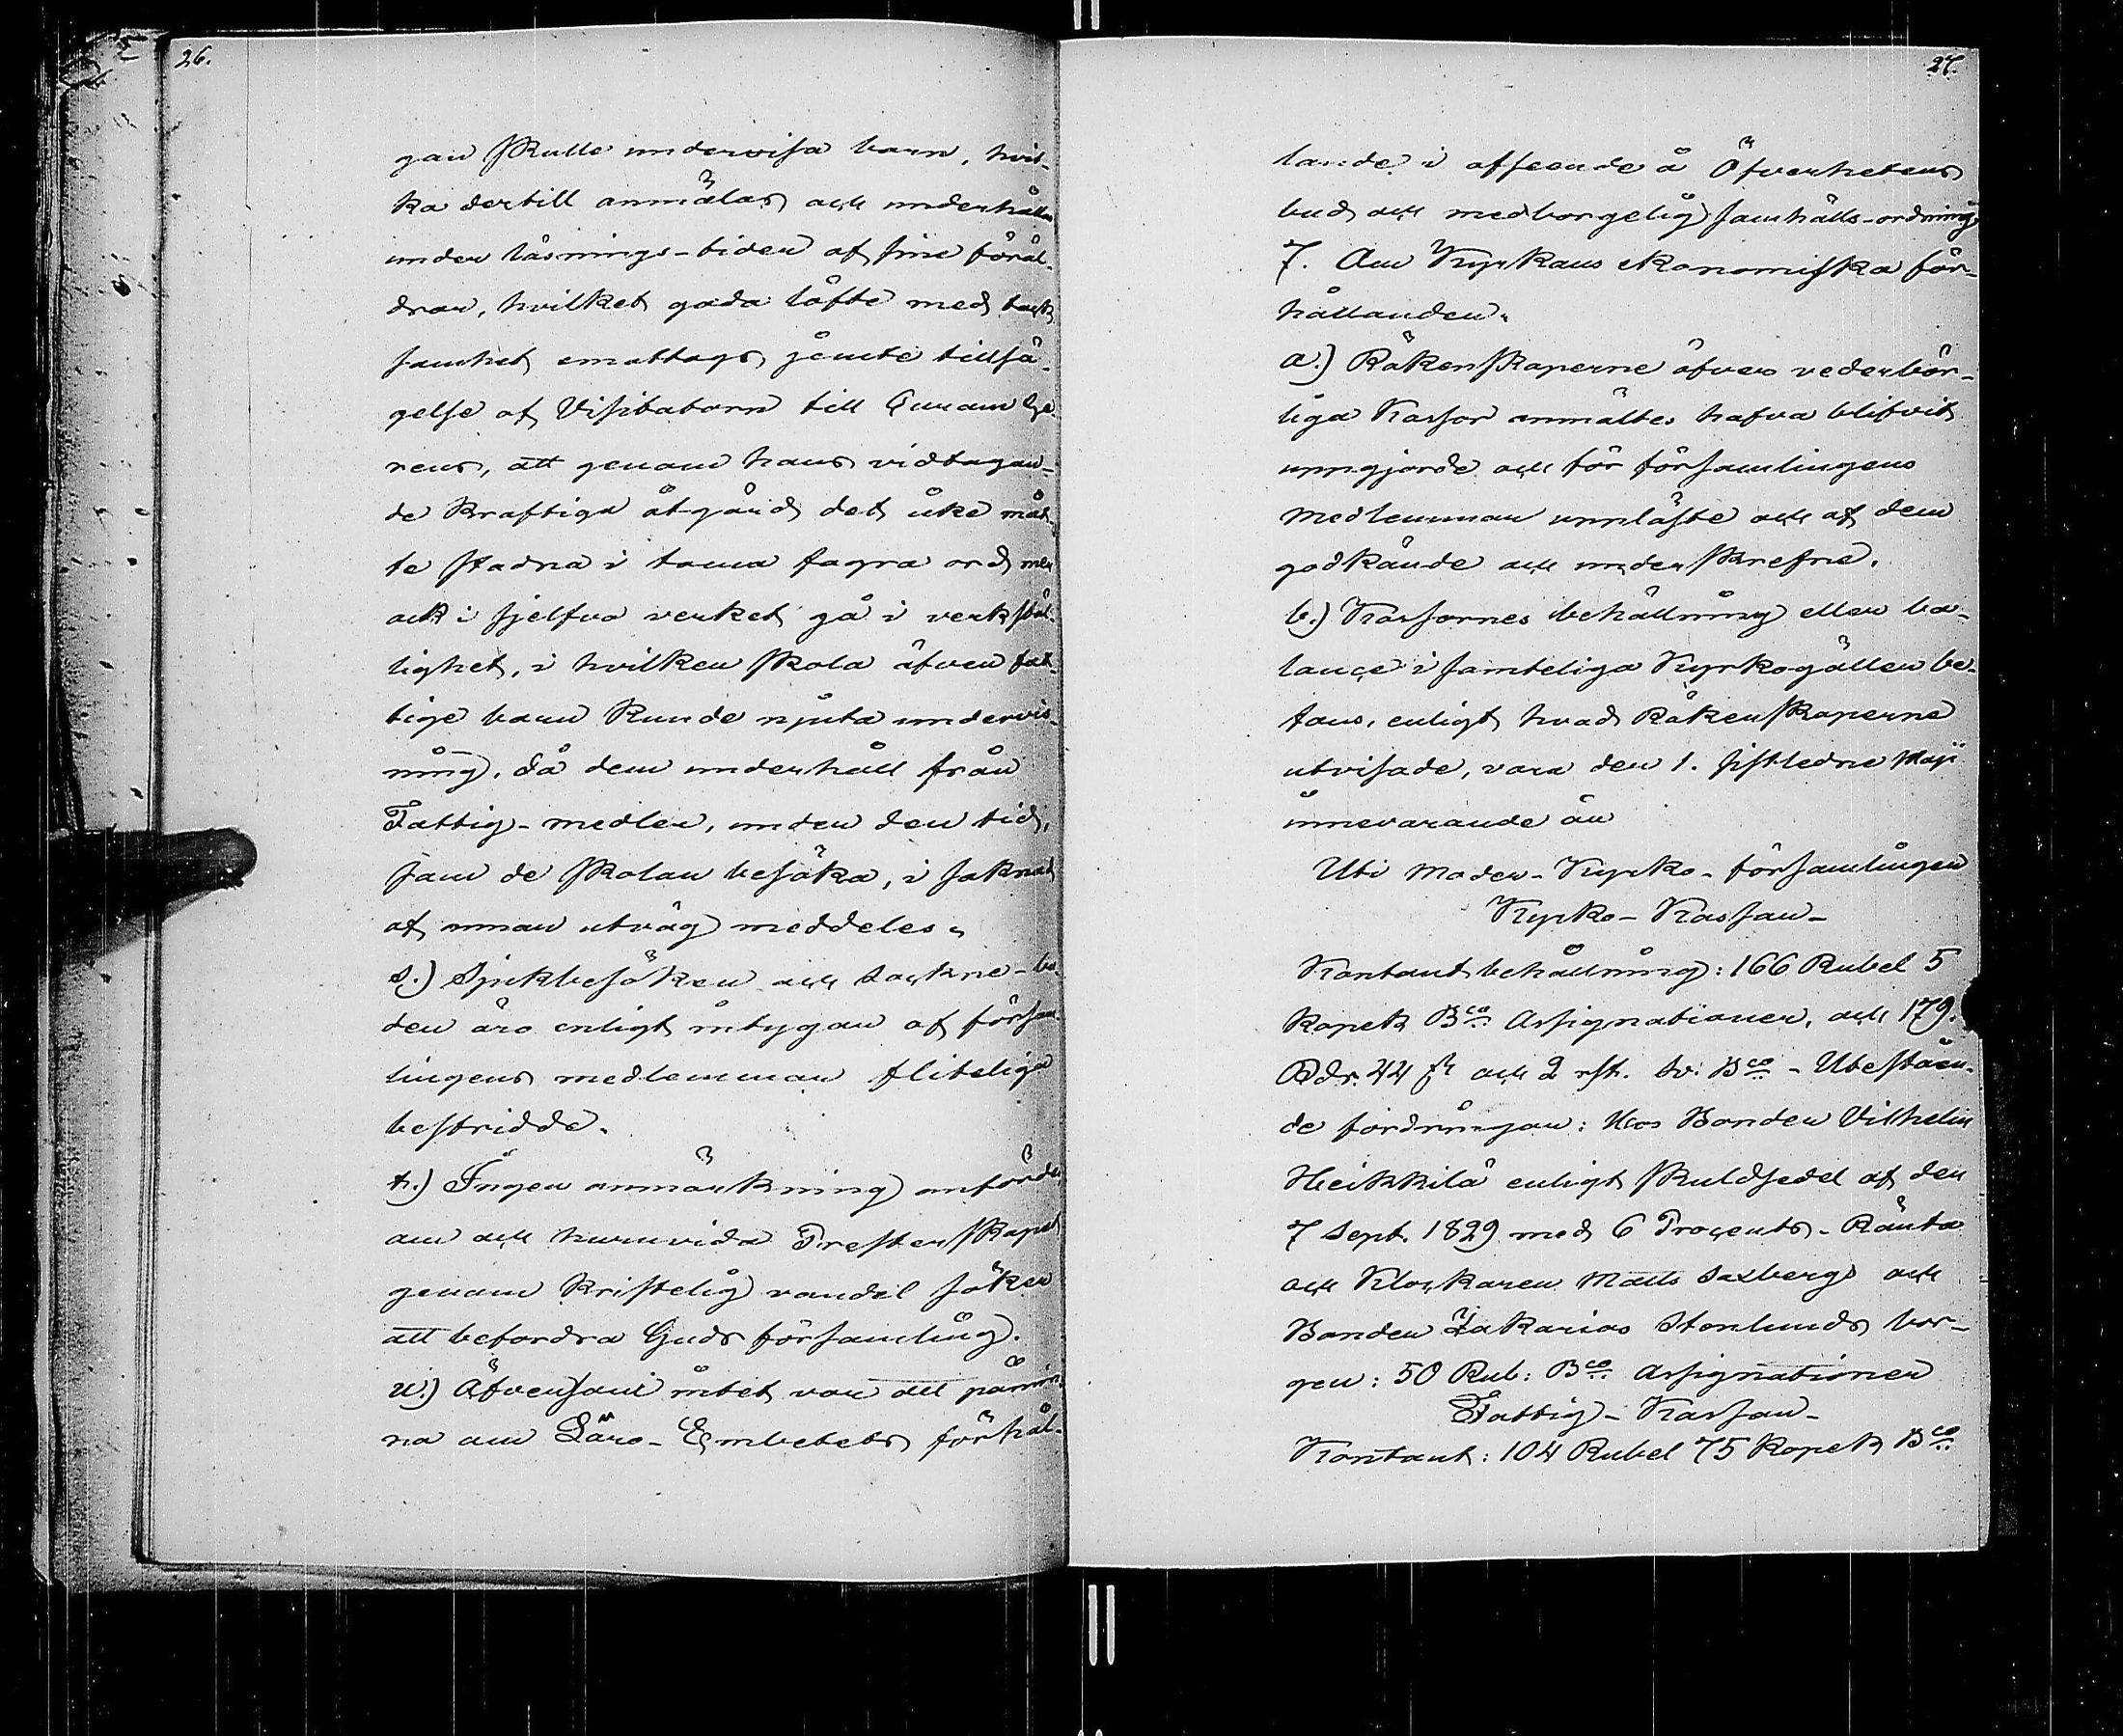 26.
gan skulle undervisa barn, hvil-
ka dertill anmälas och underhållas
under läsnings-tiden af sine föräl-
drar, hvilket goda löfte med tack
samhet emottogs jemte tillsä-
gelse af Visitatorn till
rens, att genom hans vidtagan-
de kraftiga åtgärd det icke måt-
te stadna i toma fagra ord men
ock i sjelfva verket gå i verkstäl-
lighet, i hvilken skola äfven fat-
tige barn kunde njuta undervis-
ning, då dem underhåll från
Fattig-medlen, under den tid,
som de skolan besöka, i saknad
af annan utväg meddeles.
s.) Sjukbesöken och sockne-bu
den äro enligt intygan af försam
lingens medlemmar fliteliga
bestridde.
t.) Ingen anmärkning anfördes
om och huruvida Presterskapet
genom kristelig vandel söker
att befordra Guds församling.
u.) Äfvensom intet var att påmin-
na om Läro-Embetets förhål-
27.
lande i afseende å Öfverhetens
bud och medborgelig samhälls-ordning.
7. Om Kyrkans ekonomiska för-
hållanden.
a.) Räkenskaperne öfver vederbör-
liga Kassor anmältes hafva blifvit
uppgjorde och för församlingens
medlemmar uppläste och af dem
godkände och underskrefne.
b.) Kassornes behållning eller ba-
lance i samteliga Kyrkogällen be-
fans, enligt hvad Räkenskaperne
utvisade, vara den 1. sistledne Maji
innevarande år
Uti Moder-Kyrko-församlingen
Kyrko-Kassan-
Kontant behållning: 166 Rubel 5
kopek Bco Assignationer, och 179.
Rdr. 44 sk och 2 rst. Sv: Bco - Uteståen-
de fordringar: Hos Bonden Vilhelm
Heikkilä enligt skuldsedel af den
7 Sept. 1829 med 6 Procents-Ränta
och Klockaren Matts Saxbergs och
Bonden Zakarias Stenlunds bor-
gen: 50 Rub: Bco Assignationer
Fattig-Kassan-
Kontant: 104 Rubel 75 Kopek Bco